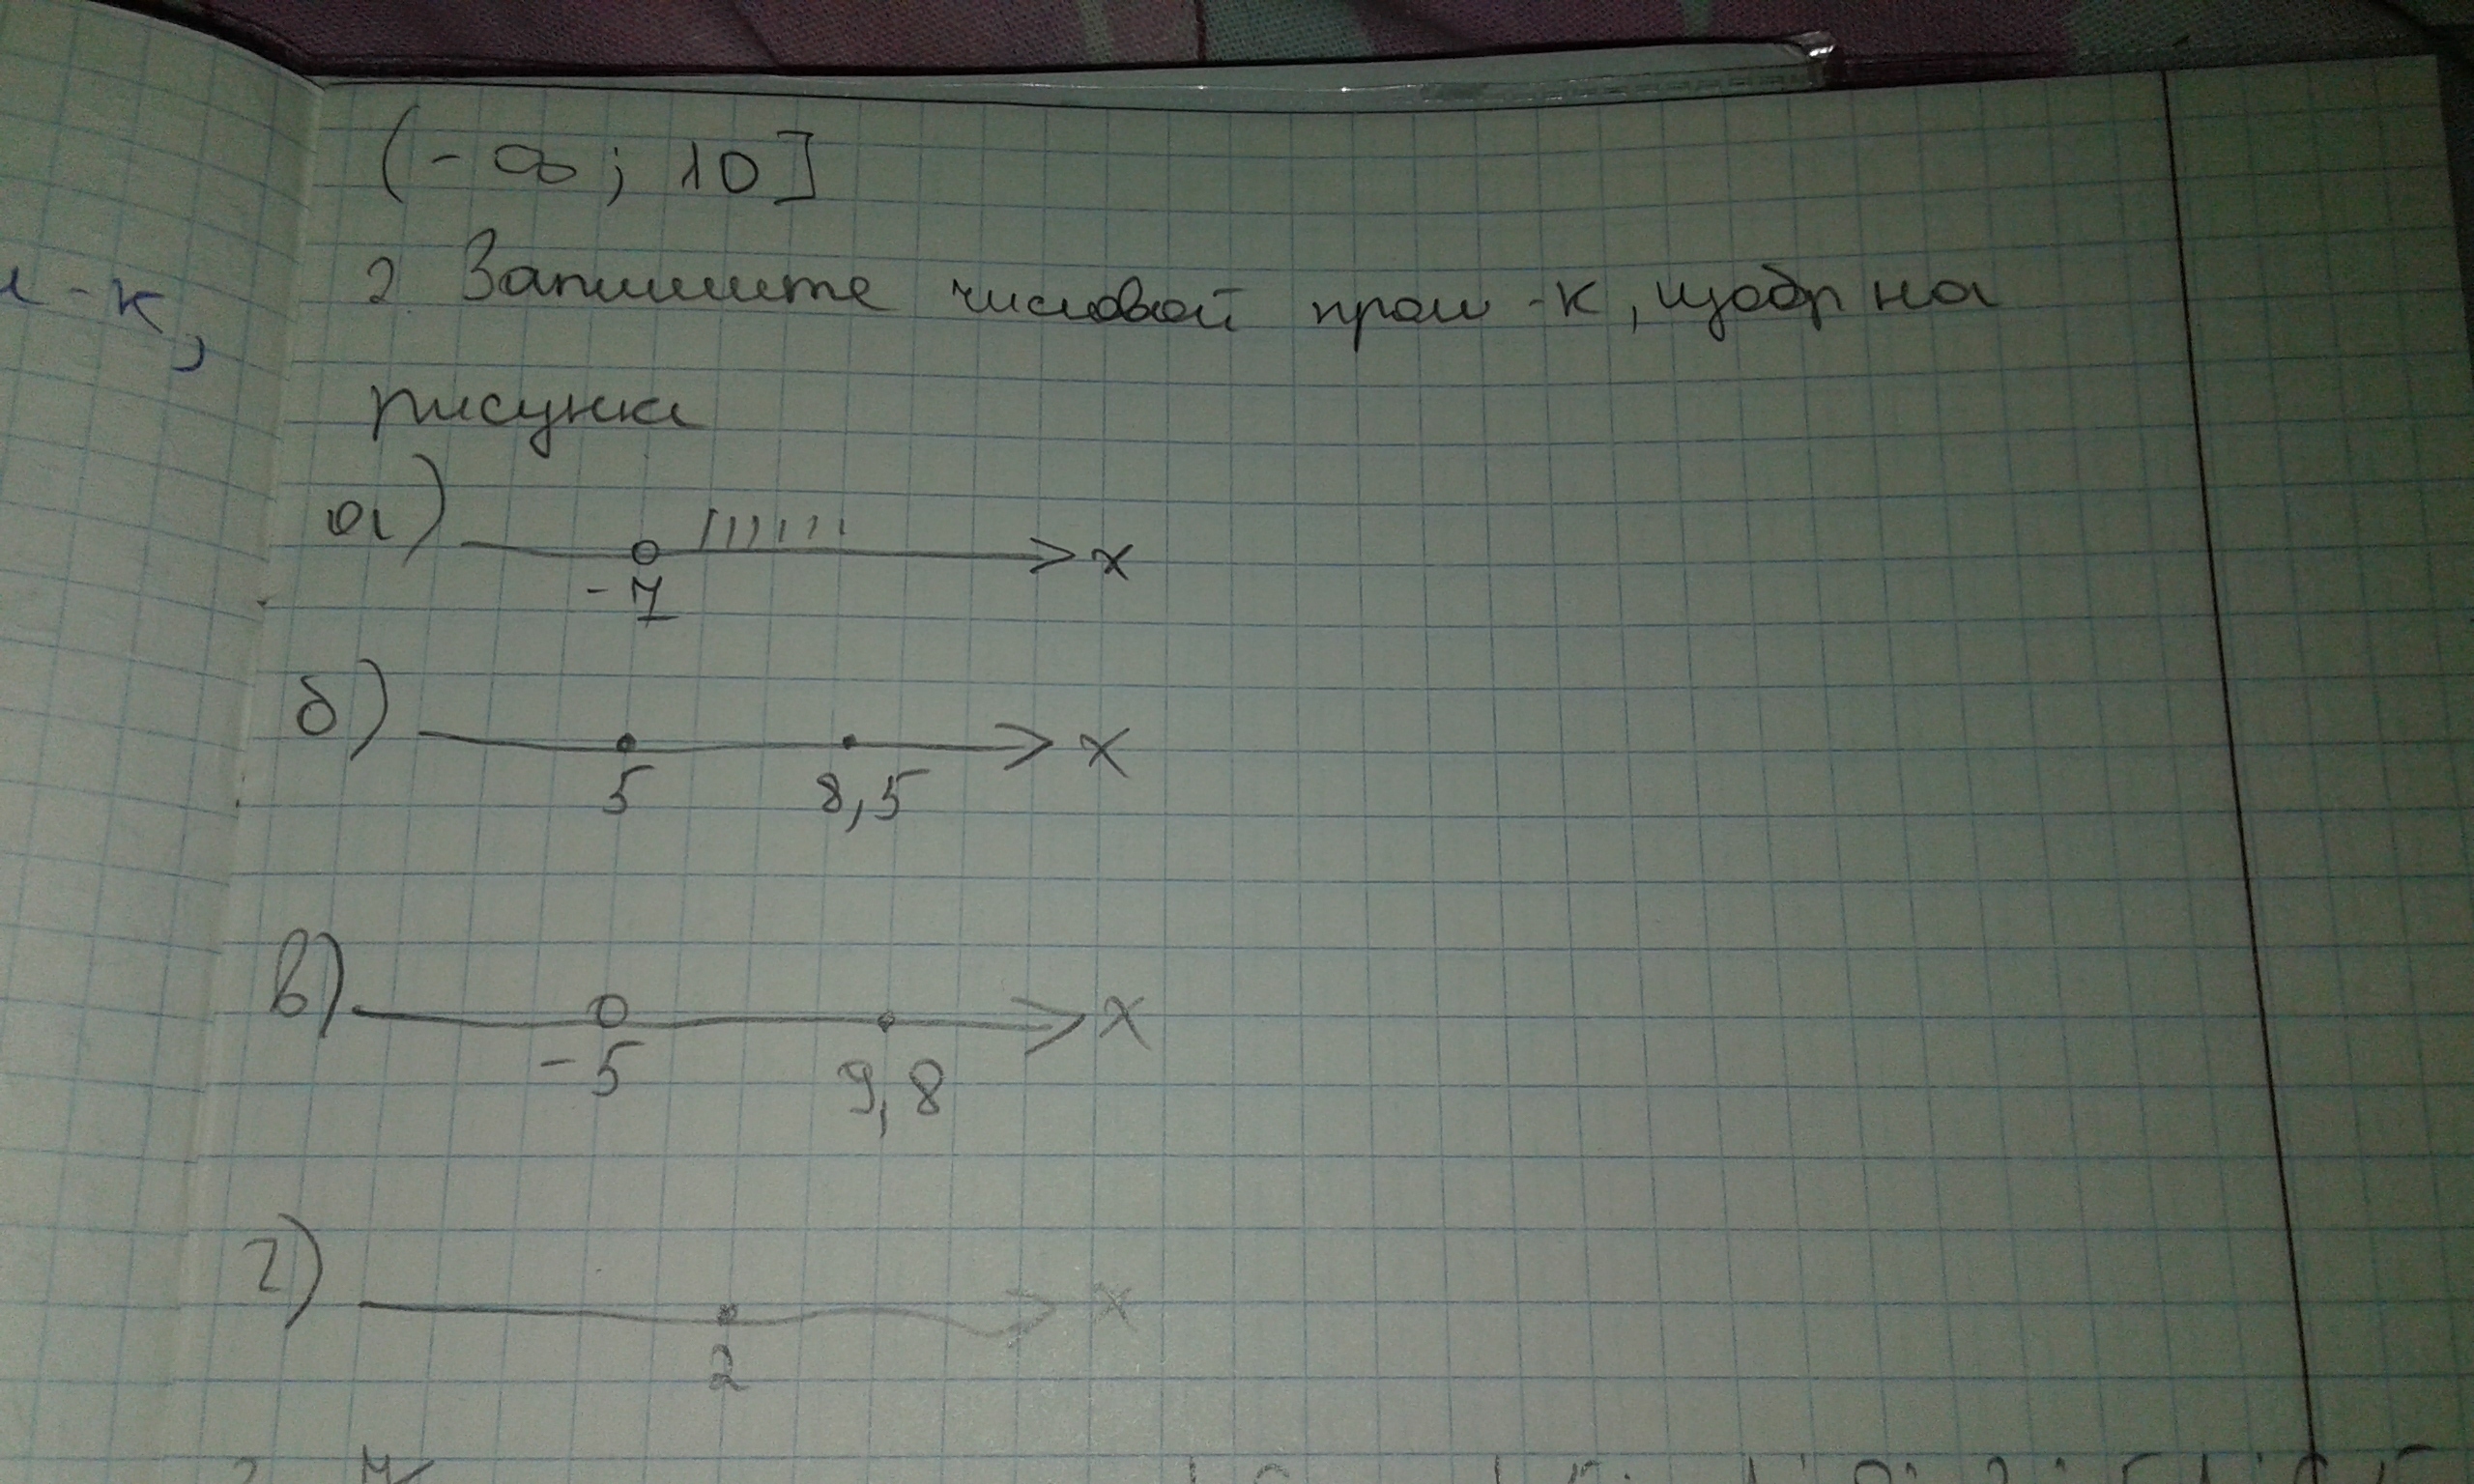 (-∞; 10]
л-к,
2. Запишите числовой пром-к, изобр на
рисунке
а) -7 x
б) 5 8,5 x
в) -5 9,8 x
г) 2 x